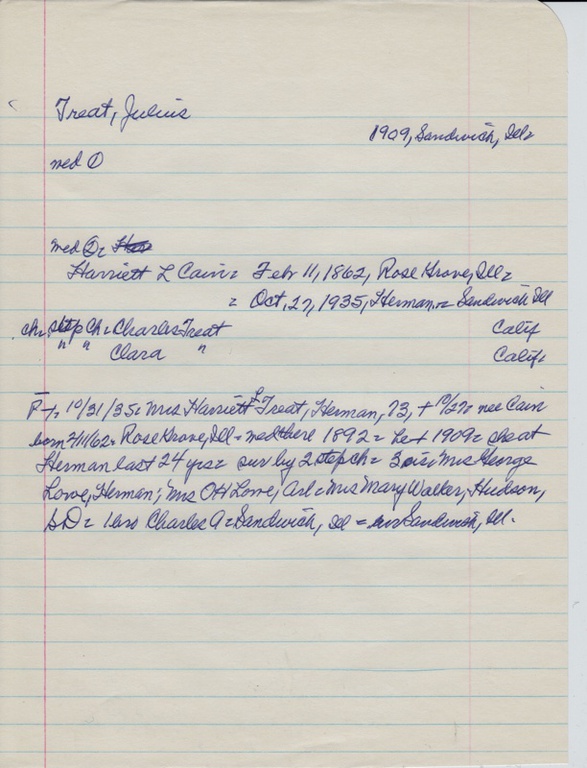 Treat, Julius
1909, Sandwich, Ill=
med ①
med ②=
Harriett L Cain = Feb 11, 1862, Rose Grove, Ill =
= Oct, 27, 1935, Herman = Sandwich Ill
ch= step Ch = Charles Treat Calif
" " Clara " Calif=
10/31/35= Mrs Harriett L Treat, Herman, 73, + 10/27= nee Cain
born 2/11/62= Rose Grove, Ill = med there 1892 = he + 1909 = she at
Herman last 24 yrs = sur by 2 step ch = 3 sis= Mrs George
Lowe, Herman; Mrs OH Lowe, Arl = Mrs Mary Walker, Hudson,
SD = 1 bro Charles A = Sandwich, Ill = bur Sandwich, Ill.